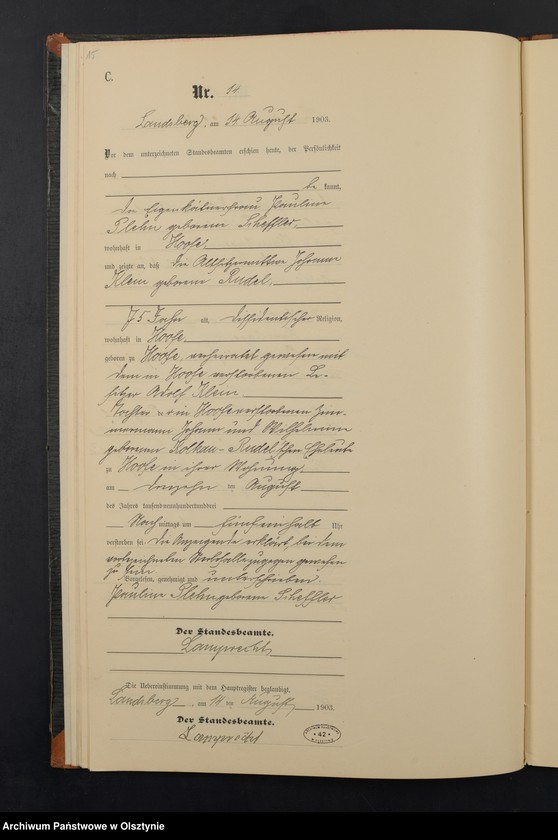 15
C.
Nr. 14
Landsberg, am 14 August 1903.
Vor dem unterzeichneten Standesbeamten erschien heute, der Persönlichkeit
nach
be kannt,
die Eigenkätnerfrau Pauline
Plehn geborene Scheffler,
wohnhaft in Hoofe,
und zeigte an, daß die Altsitzerwittwe Johanne
Klein geborene Rudel,
75 Jahre alt, dissidentischer Religion,
wohnhaft in Hoofe,
geboren zu Hoofe, verheiratet gewesen mit
dem in Hoofe verstorbenen Be-
sitzer Adolf Klein
Tochter der in Hoofe verstorbenen Zim-
mermann Johann und Wilhelmine
geborenen Kolkau-Rudel'schen Eheleute
zu Hoofe in ihrer Wohnung
am dreizehn ten August
des Jahres tausendneunhundertunddrei
Nach mittags um fünfeinhalb Uhr
verstorben sei. Die Anzeigende erklärt, bei dem
vorbezeichneten Sterbefalle zugegen gewesen
zu sein
Vorgelesen, genehmigt und unterschrieben.
Pauline Plehn geborene Scheffler
Der Standesbeamte.
Lamprecht
Die Uebereinstimmung mit dem Hauptregister beglaubigt,
Landsberg, am 14 ten August 1903.
Der Standesbeamte.
Lamprecht
• 42 •
Archiwum Państwowe w Olsztynie